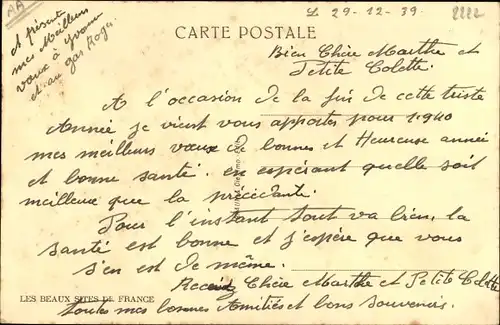 AA
Le 29-12-39
2222
CARTE POSTALE
A présent
mes Meilleurs
vœux à Yvonne
et au gas Roga.
Bien Chère Marthe et
Petite Colette.
A l'occasion de la fin de cette triste
Année je vient vous apportes pour 1940
mes meilleurs vœux de bonnes et Heureuse année
et bonne santé. en espérant quelle soit
meilleure que la précédante.
Pour l'instant tout va bien, la
santé est bonne et j'espère que vous
s'en est de même.
Recevez Chère Marthe et Petite Colette
toutes mes bonnes Amitiés et bons souvenirs.
LES BEAUX SITES DE FRANCE